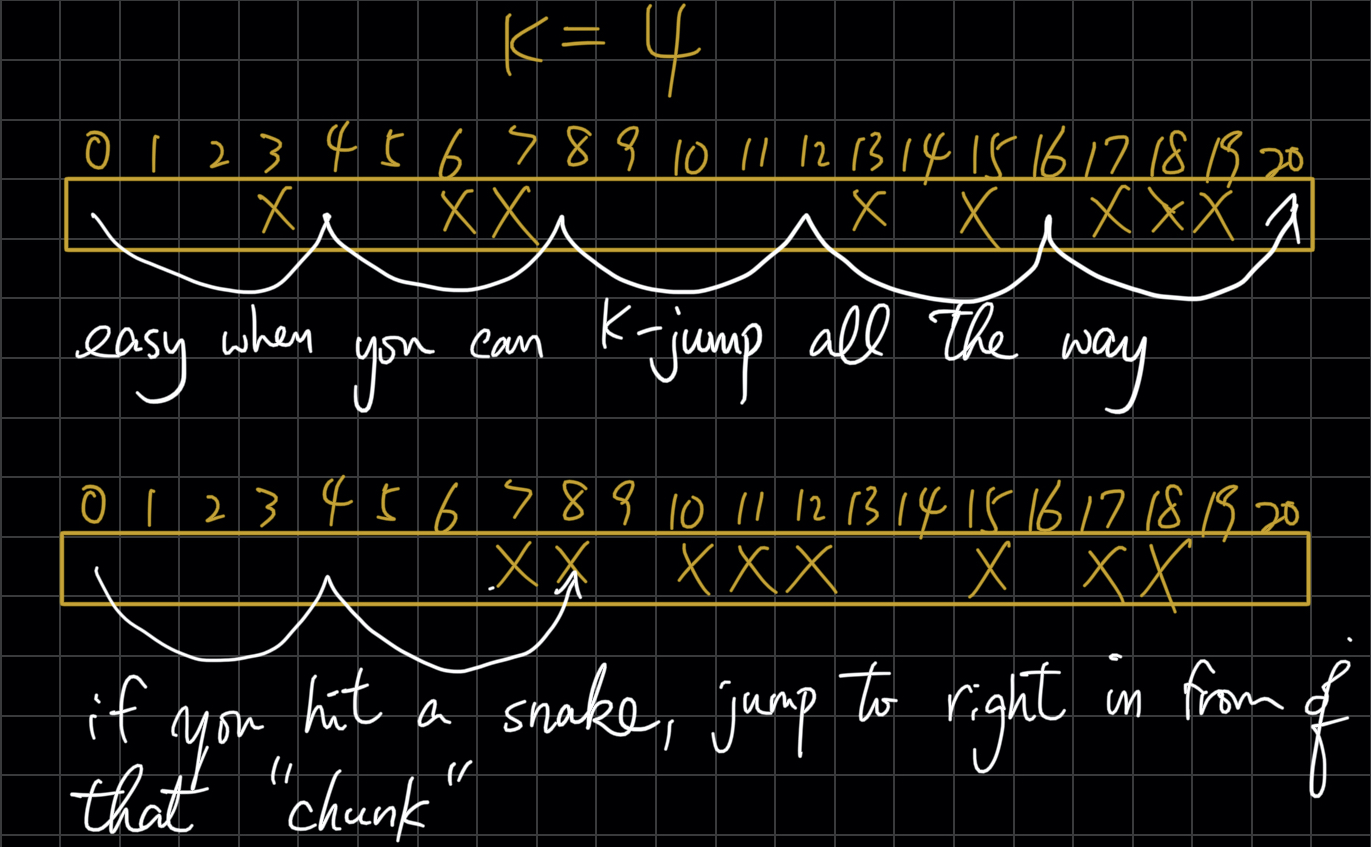 K = 4
0 1 2 3 4 5 6 7 8 9 10 11 12 13 14 15 16 17 18 19 20
X X X X X X X X
easy when you can K-jump all the way
0 1 2 3 4 5 6 7 8 9 10 11 12 13 14 15 16 17 18 19 20
X X X X X X X X
if you hit a snake, jump to right in from of
that "chunk"